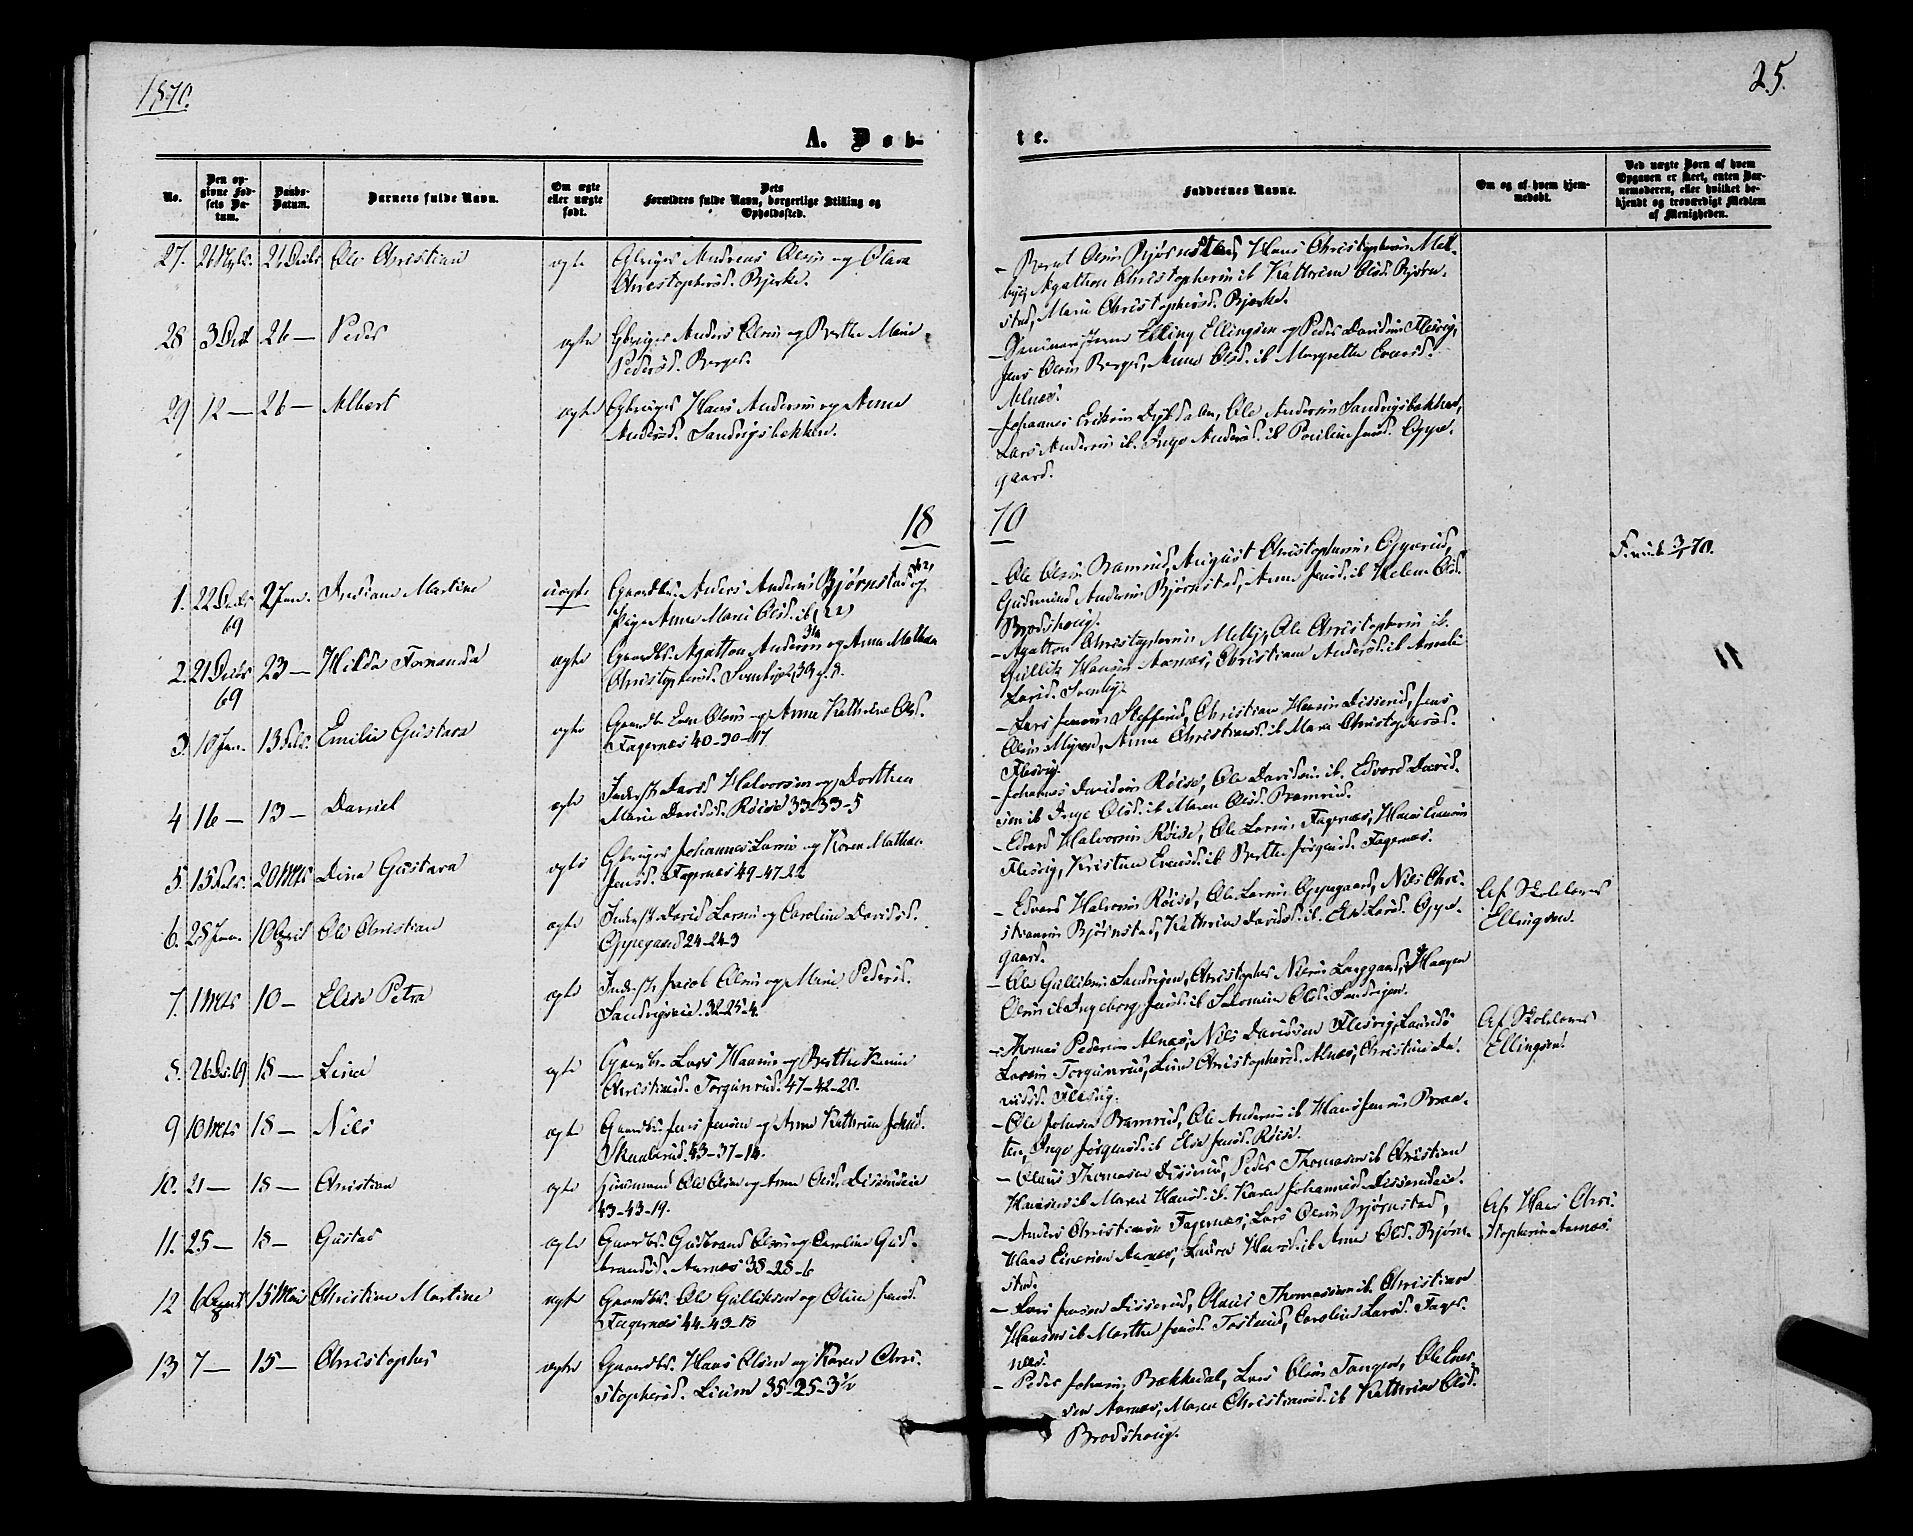 1870.
25.
A. Døb-
te.
No.
Den opgivne Fødsels Datum.
Daabs-Datum.
Barnets fulde Navn.
Om ægte eller uægte født.
Dets Forældres fulde Navn, borgerlige Stilling og Opholdssted.
Faddernes Navne.
Om og af hvem hjemmedøbt.
Ved uægte Børn af hvem Opgaven er skeet, enten Barnemoderen, eller hvilket bekjendt og troværdigt Medlem af Menigheden.
27. 26 26 Decbr Ole Christian ægte Gbruger Andreas Olsen og Olava
Christophersd. Bjerke.
- Bernt Olsen Bjørnstad, Hans Christophersen Mel-
by, Agathon Christophersen ib. Kathrine Olsd. Bjørn-
stad, Marie Christophersd. Bjerke.
28 3 Dec 26 — Peder ægte Gbruger Anders Olsen og Berthe Marie
Pedersd. Berger.
- Seminaristerne Elling Ellingsen og Peder Davidsen Flesvig,
Jens Olsen Berger, Anne Olsd. ib. Margrethe Evensd.
Alnæs.
29 12 — 26 — Albert ægte Gbruger Hans Andersen og Anne
Andersd. Sandvigsbakken.
- Johannes Eriksen Dybdalen, Ole Andersen Sandvigsbakken,
Lars Andersen ib. Inge Andersd. ib. Pauline Jensd. Oppe-
gaard.
18 70
1. 22 Decbr 69 2 Jan. Andrine Martine uægte Gaardbr. Anders Andersen Bjørnstad og
Pige Anne Marie Olsd. ib. (22)
- Ole Olsen Bramrud, August Christophersen Gjyverud,
Gudmund Andersen Bjørnstad, Anne Jensd. ib. Helene Olsd.
Brodshoug.
3/70.
2. 21 Decbr 69 23 — Hilda Fernanda ægte Gaardbr. Agathon Andersen 34 og Anne Mathea
Christophersd. Svenby 39 g. 8.
- Agathon Christophersen Melby, Ole Christophersen ib.
Gullik Hansen Aarnæs, Christiane Andersd. ib. Amalie
Larsd. Svenby.
3. 10 Jan. 13 Febr. Emilie Gustava ægte Gaardbr. Even Olsen og Anne Kathrine Olsd.
Fagernæs 40-30-17
- Lars Jensen Stefferud, Christian Hansen Disserud, Jens
Olsen Myrvd, Anne Christiansd. ib. Maren Christophersd.
Flesvig.
4 16 — 13 — Daniel ægte Inderst David Halvorsen og Dorthea
Marie Davidsd. Røise 33-33-5
- Johannes Davidsen Røise, Ole Davidsen ib. Edvard David-
sen ib. Inge Olsd. ib. Maren Olsd. Bramrud.
5. 15 Febr. 20 Mts Dina Gustava ægte Gbruger Johannes Larsen og Karen Mathea
Jensd. Fagernæs 49-47-22
- Edvard Halvorsen Røise, Ole Larsen Fagernæs, Hans Evensen
Flesvig, Kristine Evensd. ib. Berthe Jørgensd. Fagernæs.
6. 28 Jan. 10 April Ole Christian ægte Inderst David Larsen og Caroline Davidsd.
Oppegaard 24-24-3
- Edvard Halvorsen Røise, Ole Larsen Oppegaard, Nils Chri-
stiansen Bjørnstad, Kathrine Davidsd. ib. Else Larsd. Oppe-
gaard.
Af Skolelærer
Ellingsen.
7. 1 Mts 10 — Elise Petra ægte Inderst Jacob Olsen og Marie Pedersd.
Sandvigseie. 32-25-4.
- Ole Gulliksen Sandvigen, Christopher Nilsen Langgaard, Haagen
Olsen ib. Ingeborg Jensd. ib. Salomine Olsd. Sandvigen.
8. 26 Dec. 69 18 — Lina ægte Gaardbr. Lars Hansen og Berthe Karine
Christiansd. Torgunrud. 47-42-20.
- Thomas Pedersen Alnæs, Nils Davidsen Flesvig, Lauritz
Larsen Torgunrud, Lina Christophersd. Alnæs, Christine Da-
vidsd. Flesvig.
Af Skolelærer
Ellingsen.
9 10 Mts 18 — Nils ægte Gaardbr. Jens Jensen og Anne Kathrine Johnsd.
Skuulerud. 43-37-14.
- Ole Johnsen Bramrud, Ole Andersen ib. Hans Jensen Braa-
ten, Inge Jørgensd. ib. Else Jensd. Røise.
10. 21 — 18 — Christian ægte Huusmand Ole Olsen og Anne Olsd. Disserudeie
43-43-19.
- Olaus Thomassen Disserud, Peder Thomassen ib. Christian
Hansen ib. Maren Hansd. ib. Karen Johannesd. Disserudeie.
11. 25 — 18 — Gustav ægte Gaardbr. Gudbrand Olsen og Caroline Gud-
brandsd. Aarnæs 38-28-6
- Anders Christiansen Fagernæs, Lars Olsen Bjørnstad,
Hans Einersen Aarnæs, Laura Hansd. ib. Anne Olsd. Bjørn-
stad.
Af Hans Chri-
stophersen Aarnæs.
12 6 April 15 Mai Christine Martine ægte Gaardbr. Ole Gulliksen og Oline Jensd.
Fagernæs 44-43-18
- Lars Jensen Disserud, Olaus Thomassen ib. Christian
Hansen ib. Marthe Jensd. Tosterud, Caroline Larsd. Fager-
næs.
13 7 — 15 — Christopher ægte Gaardbr. Hans Olsen og Karen Chri-
stophersd. Lium 35-25-3½
- Peder Johnsen Bækkedal, Lars Olsen Tangen, Ole Ener-
sen Aarnæs, Maren Christiansd. ib. Kathrine Olsd.
Brodshoug.